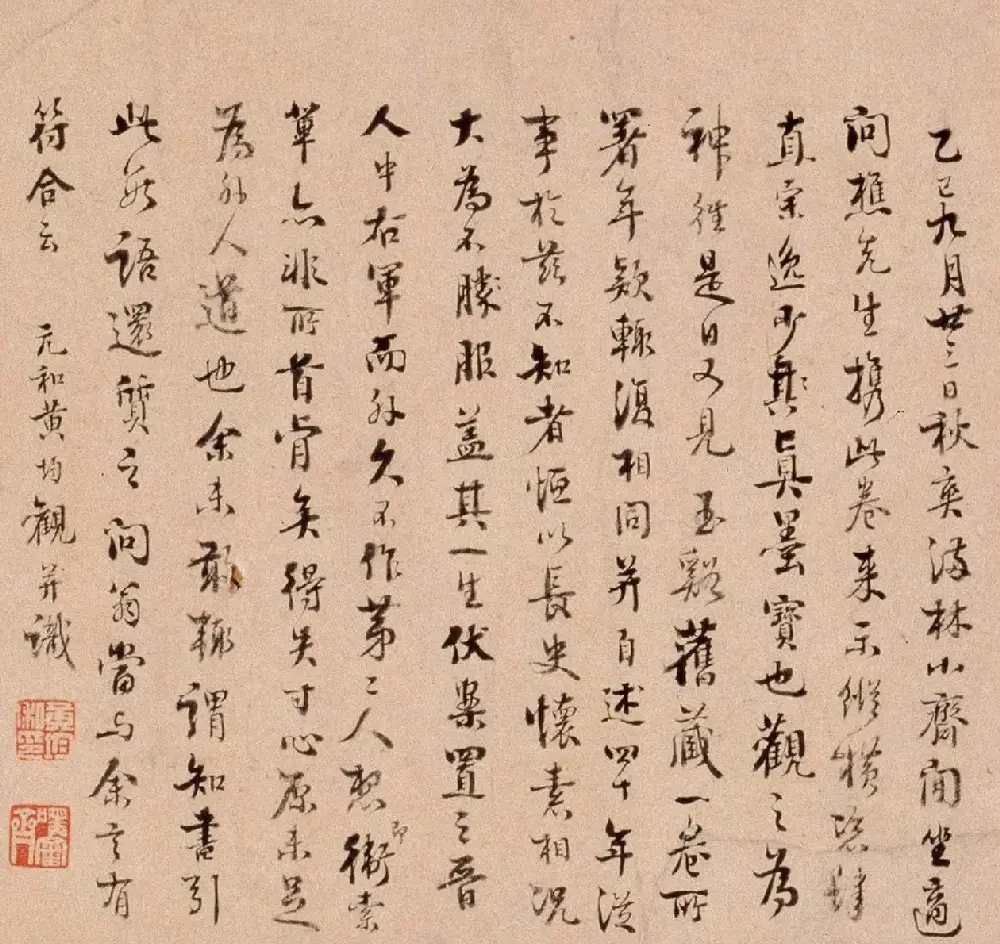 乙巳九月廿三日秋爽满林小齋閒坐適
问樵先生攜此卷来示縱横恣肆
直宗逸少製真墨寶也觀之為
神往是日又見玉谿舊藏一卷所
署年款輒復相同并自述四十年從
事於茲不知者恒以長史懷素相况
大為不勝服盖其一生伏案置之晋
人中右軍而外久不作第二人想即衛索
草亦非所首肯矣得失寸心原未足
為外人道也余未敢輒謂知書引
此数語還質之问翁當与余言有
符合云 元和黄均觀并識